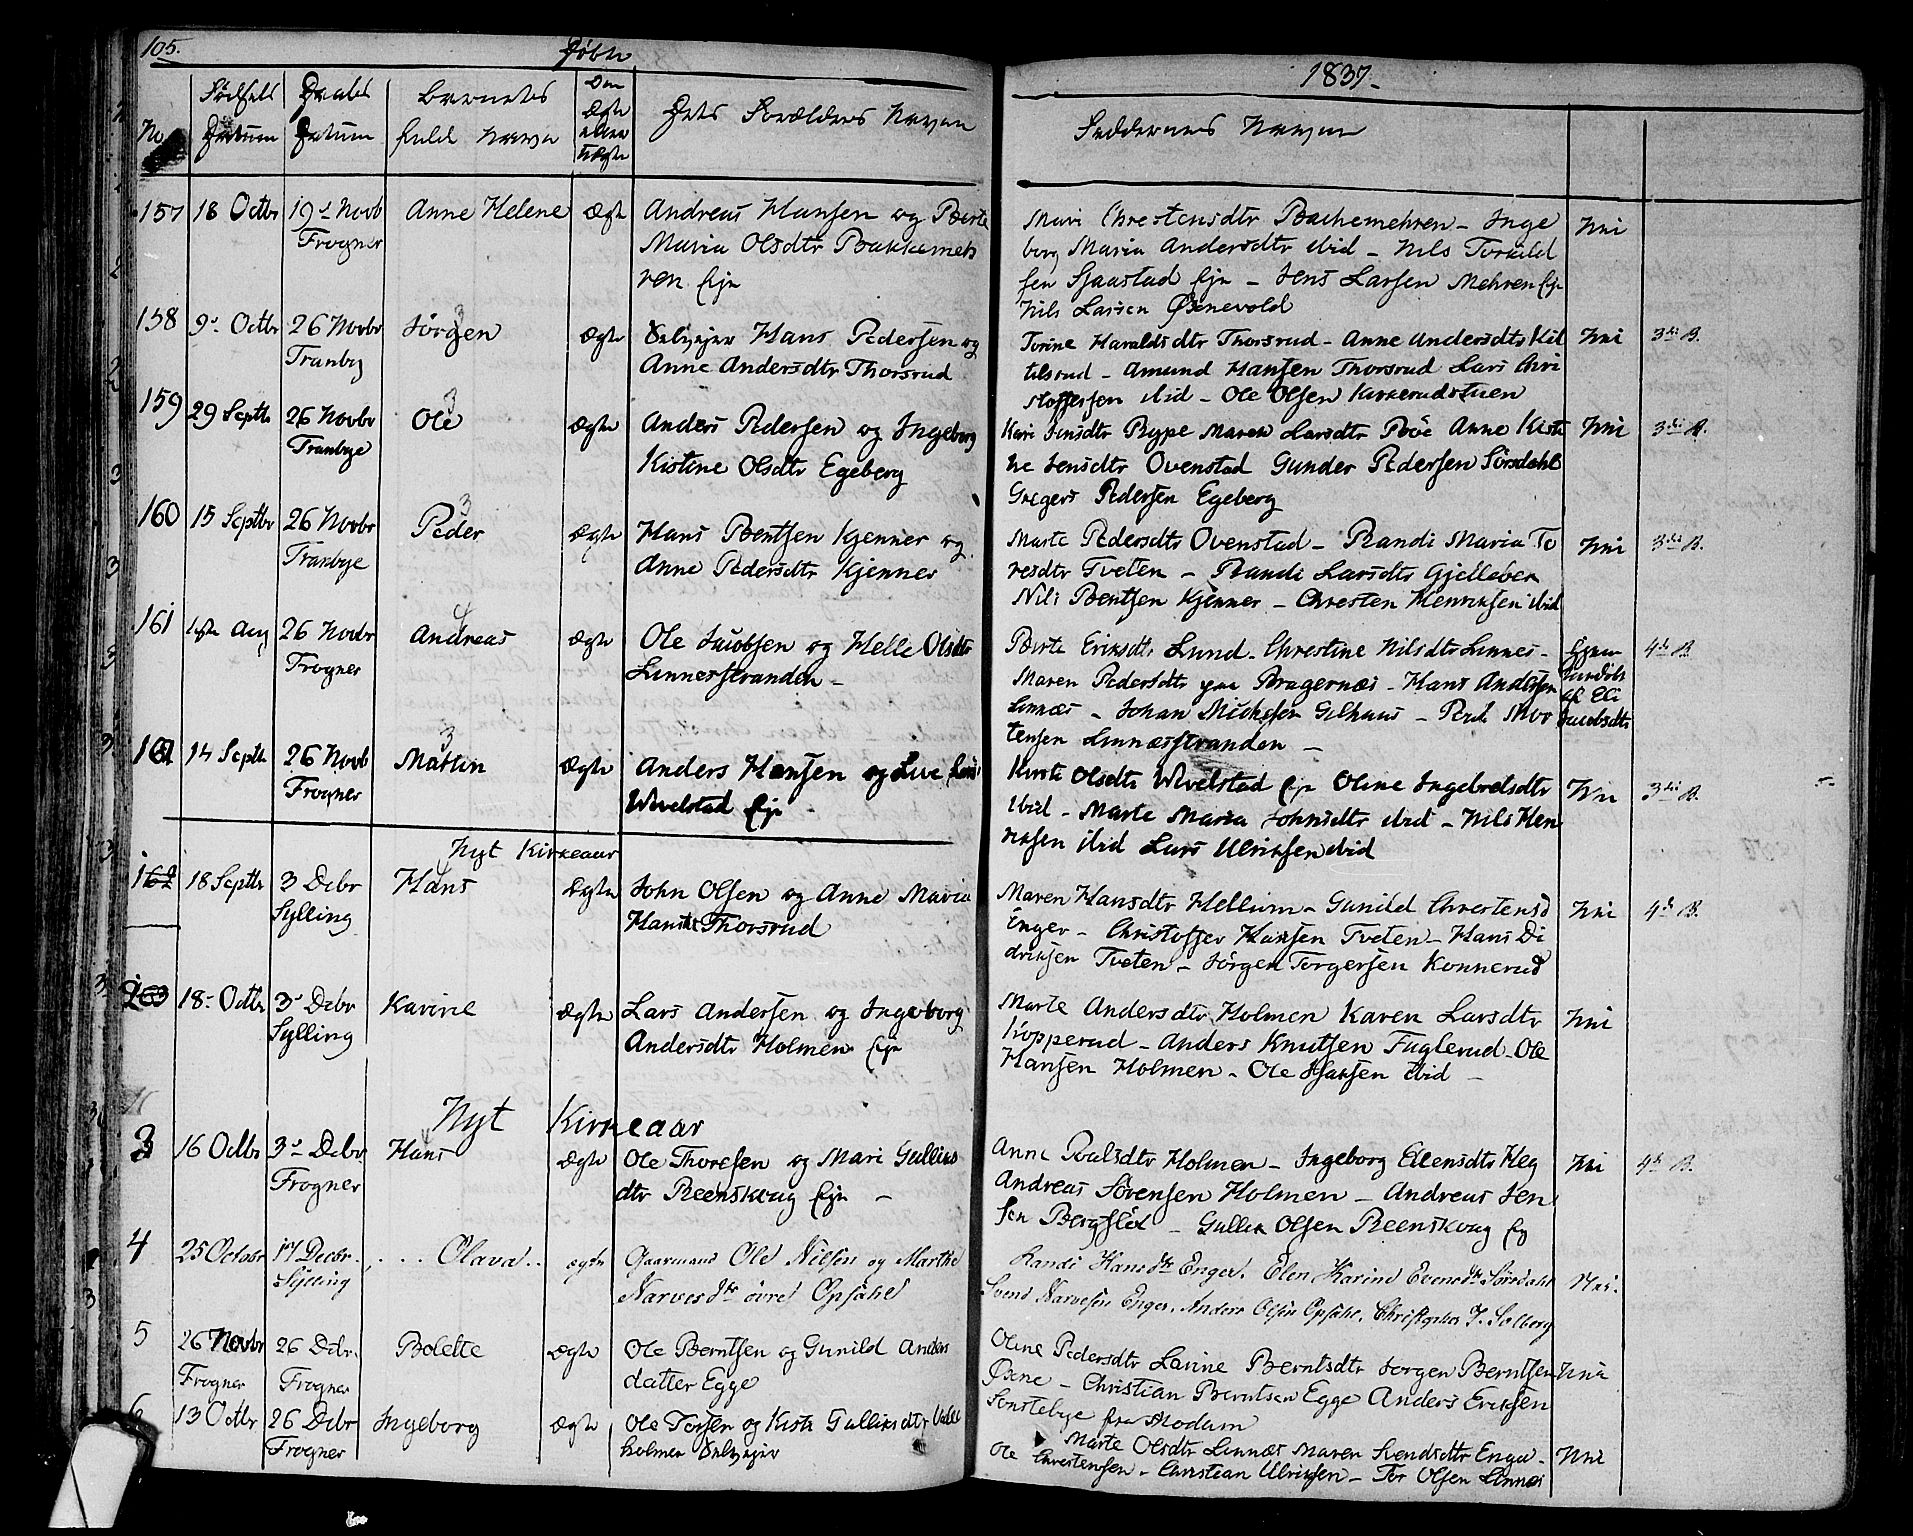 105.
Døbte
1837.
No
Fødsels Datum
Daabs Datum
Barnets fulde Navn
Om Ægte eller uægte
Dets Forældres Navn
Faddernes Navne
157 18 Octbr 19de Novb Frogner Anne Helene Ægte
Andreas Hansen og Berte
Maria Olsdtr Bakkemeh
ren Eje
Mari Christensdtr Bachemehren - Inge
borg Maria Andersdtr ibid - Nils Torkild
sen Sjaastad Eje - Jens Larsen Mehren Eje
Nils Larsen Øxnevold
Nei
158 9de Octbr 26 Novbr Tranby Jørgen 3 Ægte
Selvejer Hans Pedersen og
Anne Andersdtr Thorsrud
Torine Haraldsdtr Thorsrud - Anne Andersdtr Kit
tilsrud - Amund Hansen Thorsrud Lars Chri
stoffersen ibid - Ole Olsen Kirkerudstuen
Nei 3die B.
159 29 Septb 26 Novbr Tranbye Ole 3 Ægte
Anders Pedersen og Ingeborg
Kistine Olsdtr Egeberg
Kari Jensdtr Rype Maren Larsdtr Bøe Anne Kisti
ne Jensdtr Ovenstad Gunder Pedersen Sørsdahl
Gregers Pedersen Egeberg
Nei 3die B.
160 15 Septbr 26 Novbr Tranbye Peder 3 Ægte
Hans Bentsen Kjenner og
Anne Pedersdtr Kjenner
Marte Pedersdtr Ovenstad - Randi Maria To
resdtr Tveten - Randi Larsdtr Gjelleber
Nils Bentsen Kjenner - Christen Henriksen ibid
Nei 3die B.
161 Aug 26 Novbr Frogner Andreas 4 Ægte
Ole Jacobsen og Helle Olsdtr
Linnesstranden -
Berte Eriksdtr Lund - Christine Nilsdtr Linnes -
Maren Pedersdtr paa Bragernæs - Hans Andersen
Linnæs - Johan Mickelsen Gilhuus - Peder Mor
tensen Linnæsstranden -
af Eli Jacobsdtr
4de B
161 14 Septb 26 Novb Frogner Martin 3 Ægte
Anders Hansen og Live
Wivelstad Eje
Kirsti Olsdtr Wivelstad Eje Oline Ingebretsdtr
ibid - Marte Maria Johnsdtr ibid - Nils Hen
riksen ibid Lars Ulriksen ibid
Nei 3die B.
Nyt Kirkeaar
162 18 Septb 3 Debr Sylling Hans Ægte
John Olsen og Anne Maria
Hansdtr Thorsrud
Maren Hansdtr Hellum - Gunild Christensd
Enger - Christoffer Hansen Tveten - Hans Di
driksen Tveten - Jørgen Torgersen Konnerud
Nei 4de B.
2 18de Octbr 3de Debr Sylling Karine Ægte
Lars Andersen og Ingeborg
Andersdtr Holmen Eje
Marte Andersdtr Holmen Karen Larsdtr
Kopperud - Anders Knutsen Fuglerud - Ole
Hansen Holmen - Ole Isaksen ibid -
Nei
Nyt Kirkeaar
3 16 Octbr 3de Debr Frogner Hans 4 Ægte
Ole Thoresen og Mari Gulliks
dtr Reenskoug Eje -
Anne Paalsdtr Holmen - Ingeborg Ellensdtr Heg
Andreas Sørensen Holmen - Andreas Jen
sen BergflØt - Gullik Olsen Reenskoug Ej
Nei 4de B.
4 25 Octobr 17 Decbr. Sylling Olava ægte
Gaarmand Ole Nilsen og Marthe
Narvesdtr øvre Opsahl
Randi Hansdtr Enger. Elen Karine Evensdtr Sørsdahl
Svend Narvesen Enger, Anders Olsen Opsahl, Christopher J. Solberg
Nei.
5 26 Novbr Frogner 26 Debr. Frogner Bolette Ægte
Ole Berntsen og Gunild Anders
datter Egge
Oline Pedersdtr Lavine Berntsdtr Jørgen Berntsen
Øxne - Christian Berntsen Egge Anders Eriksen
Sønstebye fra Modum
Nei
6 13 Octbr 26 Debr Frogner Ingeborg Ægte
Ole Torsen og Kisti Gulliksdtr
holmen Selvejer
Marte Olsdtr Linnæs Maren Svendsdtr Enger -
Ole Christensen - Christian Ulriksen - Tor Olsen Linnæs
Nei